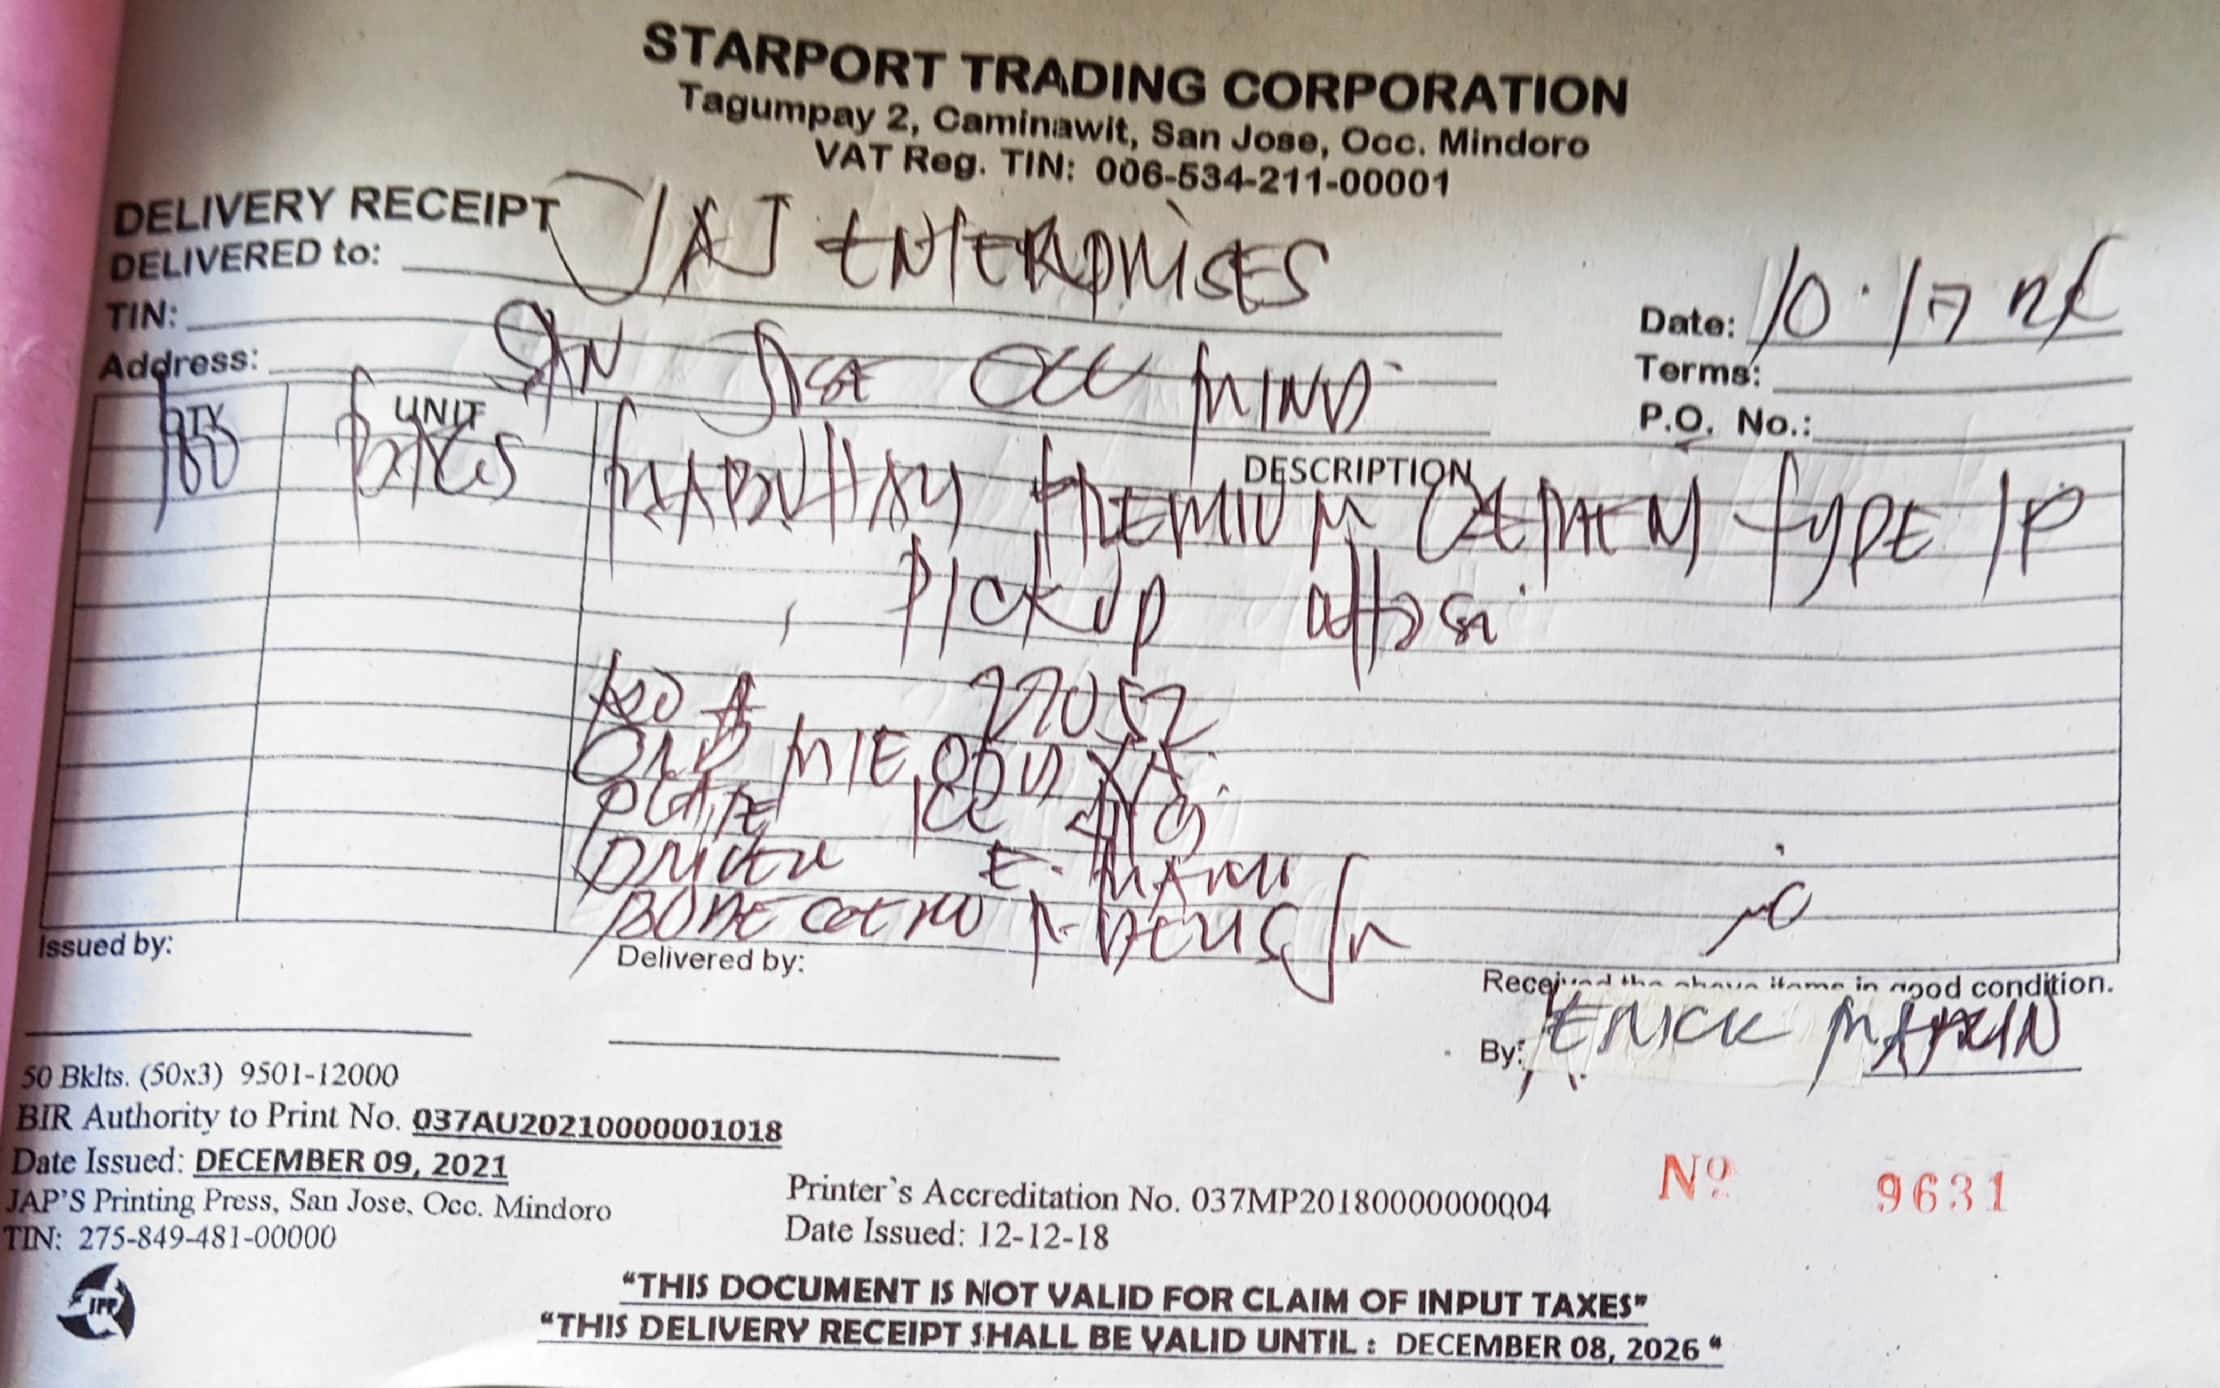 STARPORT TRADING CORPORATION
Tagumpay 2, Caminawit, San Jose, Occ. Mindoro
VAT Reg. TIN: 006-534-211-00001
DELIVERY RECEIPT
DELIVERED to: J & J ENTERPRISES
TIN:
Address: SAN JOSE OCC MIND
Date: 10-17
Terms:
P.O. No.:
QTY UNIT DESCRIPTION
100 BAGS MABUHAY PREMIUM CEMENT TYPE 1P
PICKUP
# 27052
PLATE
DRIVER E. MARIN
JR
Issued by:
Delivered by:
Received the above items in good condition.
By: ERICK MARIN
50 Bklts. (50x3) 9501-12000
BIR Authority to Print No. 037AU20210000001018
Date Issued: DECEMBER 09, 2021
JAP'S Printing Press, San Jose, Occ. Mindoro
TIN: 275-849-481-00000
Printer's Accreditation No. 037MP20180000000004
Date Issued: 12-12-18
Nº 9631
JPP
"THIS DOCUMENT IS NOT VALID FOR CLAIM OF INPUT TAXES"
"THIS DELIVERY RECEIPT SHALL BE VALID UNTIL : DECEMBER 08, 2026"